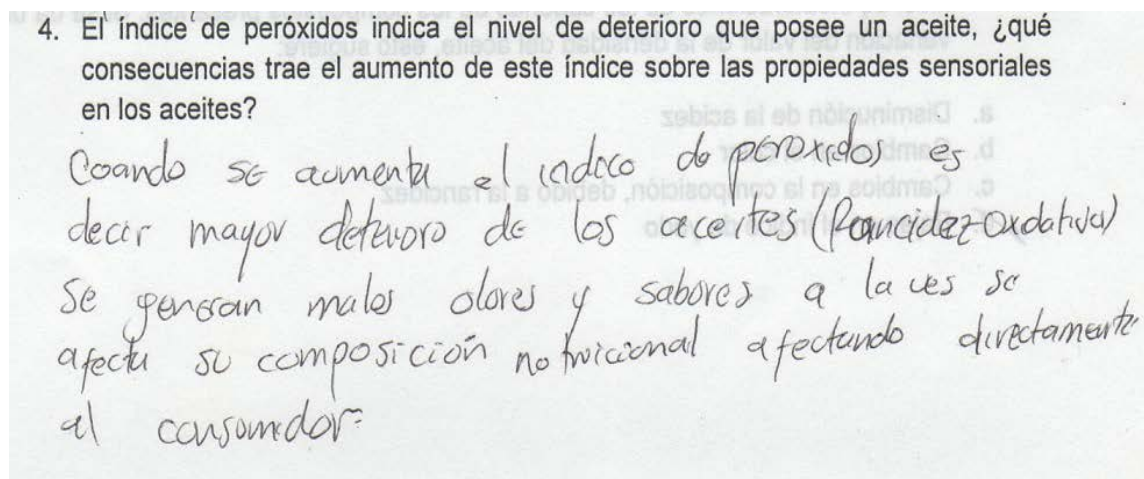 4. El índice de peróxidos indica el nivel de deterioro que posee un aceite, ¿qué
consecuencias trae el aumento de este índice sobre las propiedades sensoriales
en los aceites?
Coando se aumenta el indice de peroxidos es
decir mayor deterioro de los aceites (Rancidez Oxdativa)
Se generan malos olores y sabores a la ves se
afecta su composición notricional afectando directamente
al consumidor.